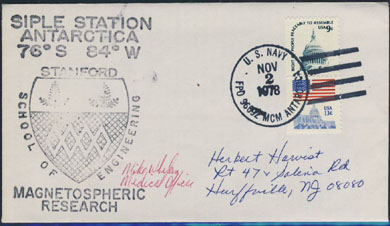 SIPLE STATION
ANTARCTICA
76°S 84°W
STANFORD
SCHOOL OF ENGINEERING
MAGNETOSPHERIC
RESEARCH
Medical Officer
U.S. NAVY
NOV
2
1978
FPO MCM
RIGHT PEOPLE PEACEABLY TO ASSEMBLE
USA 9c
USA 13c
Herbert Harvist
Rt 47 & Salina Rd
Hurffville, NJ 08080